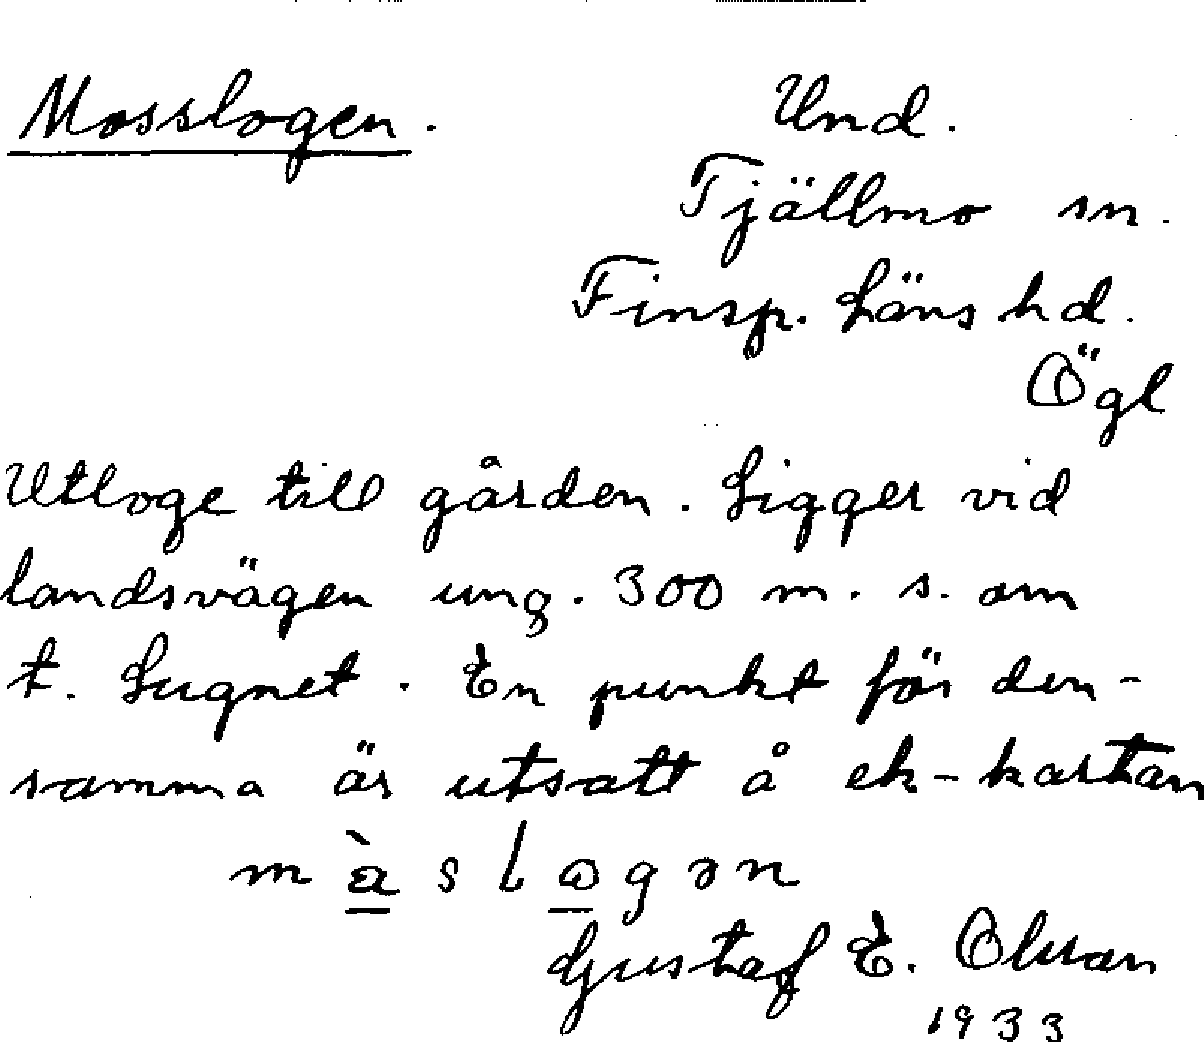 Mosslogen. Und.
Tjällmo sn.
Finsp. läns hd.
Ögl
Utloge till gården. Ligger vid
landsvägen ung. 300 m. s. om
t. Lugnet. En punkt för den-
samma är utsatt å ek-kartan
Gustaf E. Olsson
1933